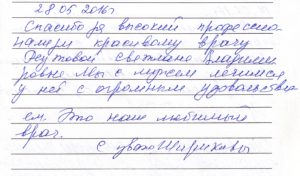 28.05.2016г
Спасибо за высокий профессио-
нализм красивому врачу
Светлане Владими
ровне. Мы с мужем лечимся
у неё с огромным удовольстви
ем. Это наш любимый
врач.
С уваж